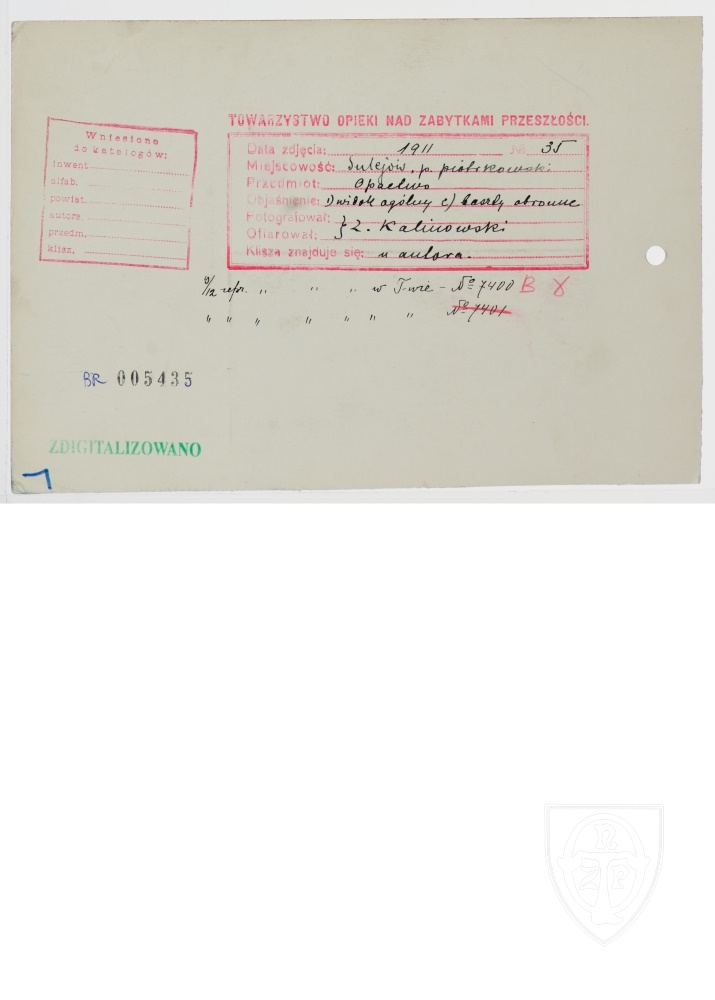 TOWARZYSTWO OPIEKI NAD ZABYTKAMI PRZESZŁOŚCI.
Wniesiono
do katalogów:
inwent.
alfab.
powiat.
autora.
przedm.
klisz.
Data zdjęcia: 1911 № 35
Miejscowość: Sulejów, p. piotrkowski
Przedmiot: Opactwo
Objaśnienie: 1) widok ogólny c) baszty obronne
Fotografował: } Z. Kalinowski
Ofiarował:
Klisza znajduje się: u autora.
9/12 repr. " " " w T-wie - № 7400 B
" " " " " " " № 7401
BR 005435
ZDIGITALIZOWANO
TONZP